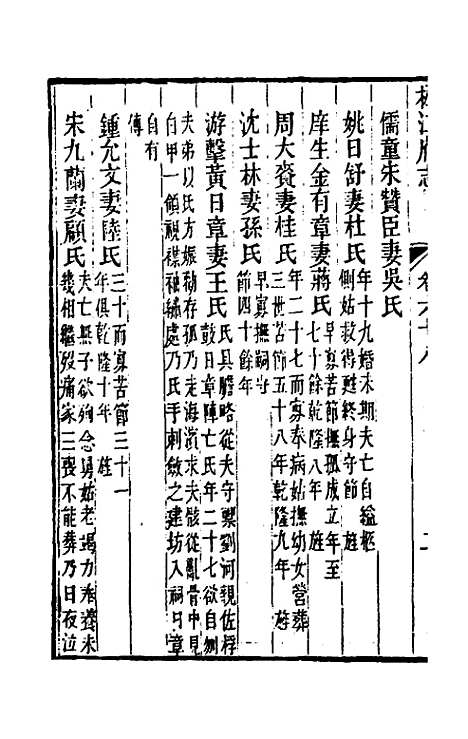 松江府志
卷六十八
二
儒童朱贊臣妻吳氏
姚日舒妻杜氏年十九婚未期夫亡自縊柩
側姑救得甦終身守節 旌
庠生金有章妻蔣氏早寡苦節撫孤成立年至
七十餘乾隆八年 旌
周大賚妻桂氏年二十七而寡奉病姑撫幼女營葬
三世苦節五十八年乾隆九年 旌
沈士林妻孫氏早寡撫嗣守
節四十餘年
游擊黃日章妻王氏氏具膽略從夫守禦劉河親佐桴
鼓日章陣亡氏年二十七欲自刎
夫弟以氏方娠勸存孤乃走海濱求夫骸從亂骨中見
白甲一領視襟袖綉處乃氏手刺斂之建坊入祠日章
自有
傳
鍾允文妻陸氏三十而寡苦節三十一
年俱乾隆十年 旌
朱九蘭妻顧氏夫亡無子欲殉念舅姑老竭力養未
幾相繼歿痛家三喪不能葬乃日夜泣